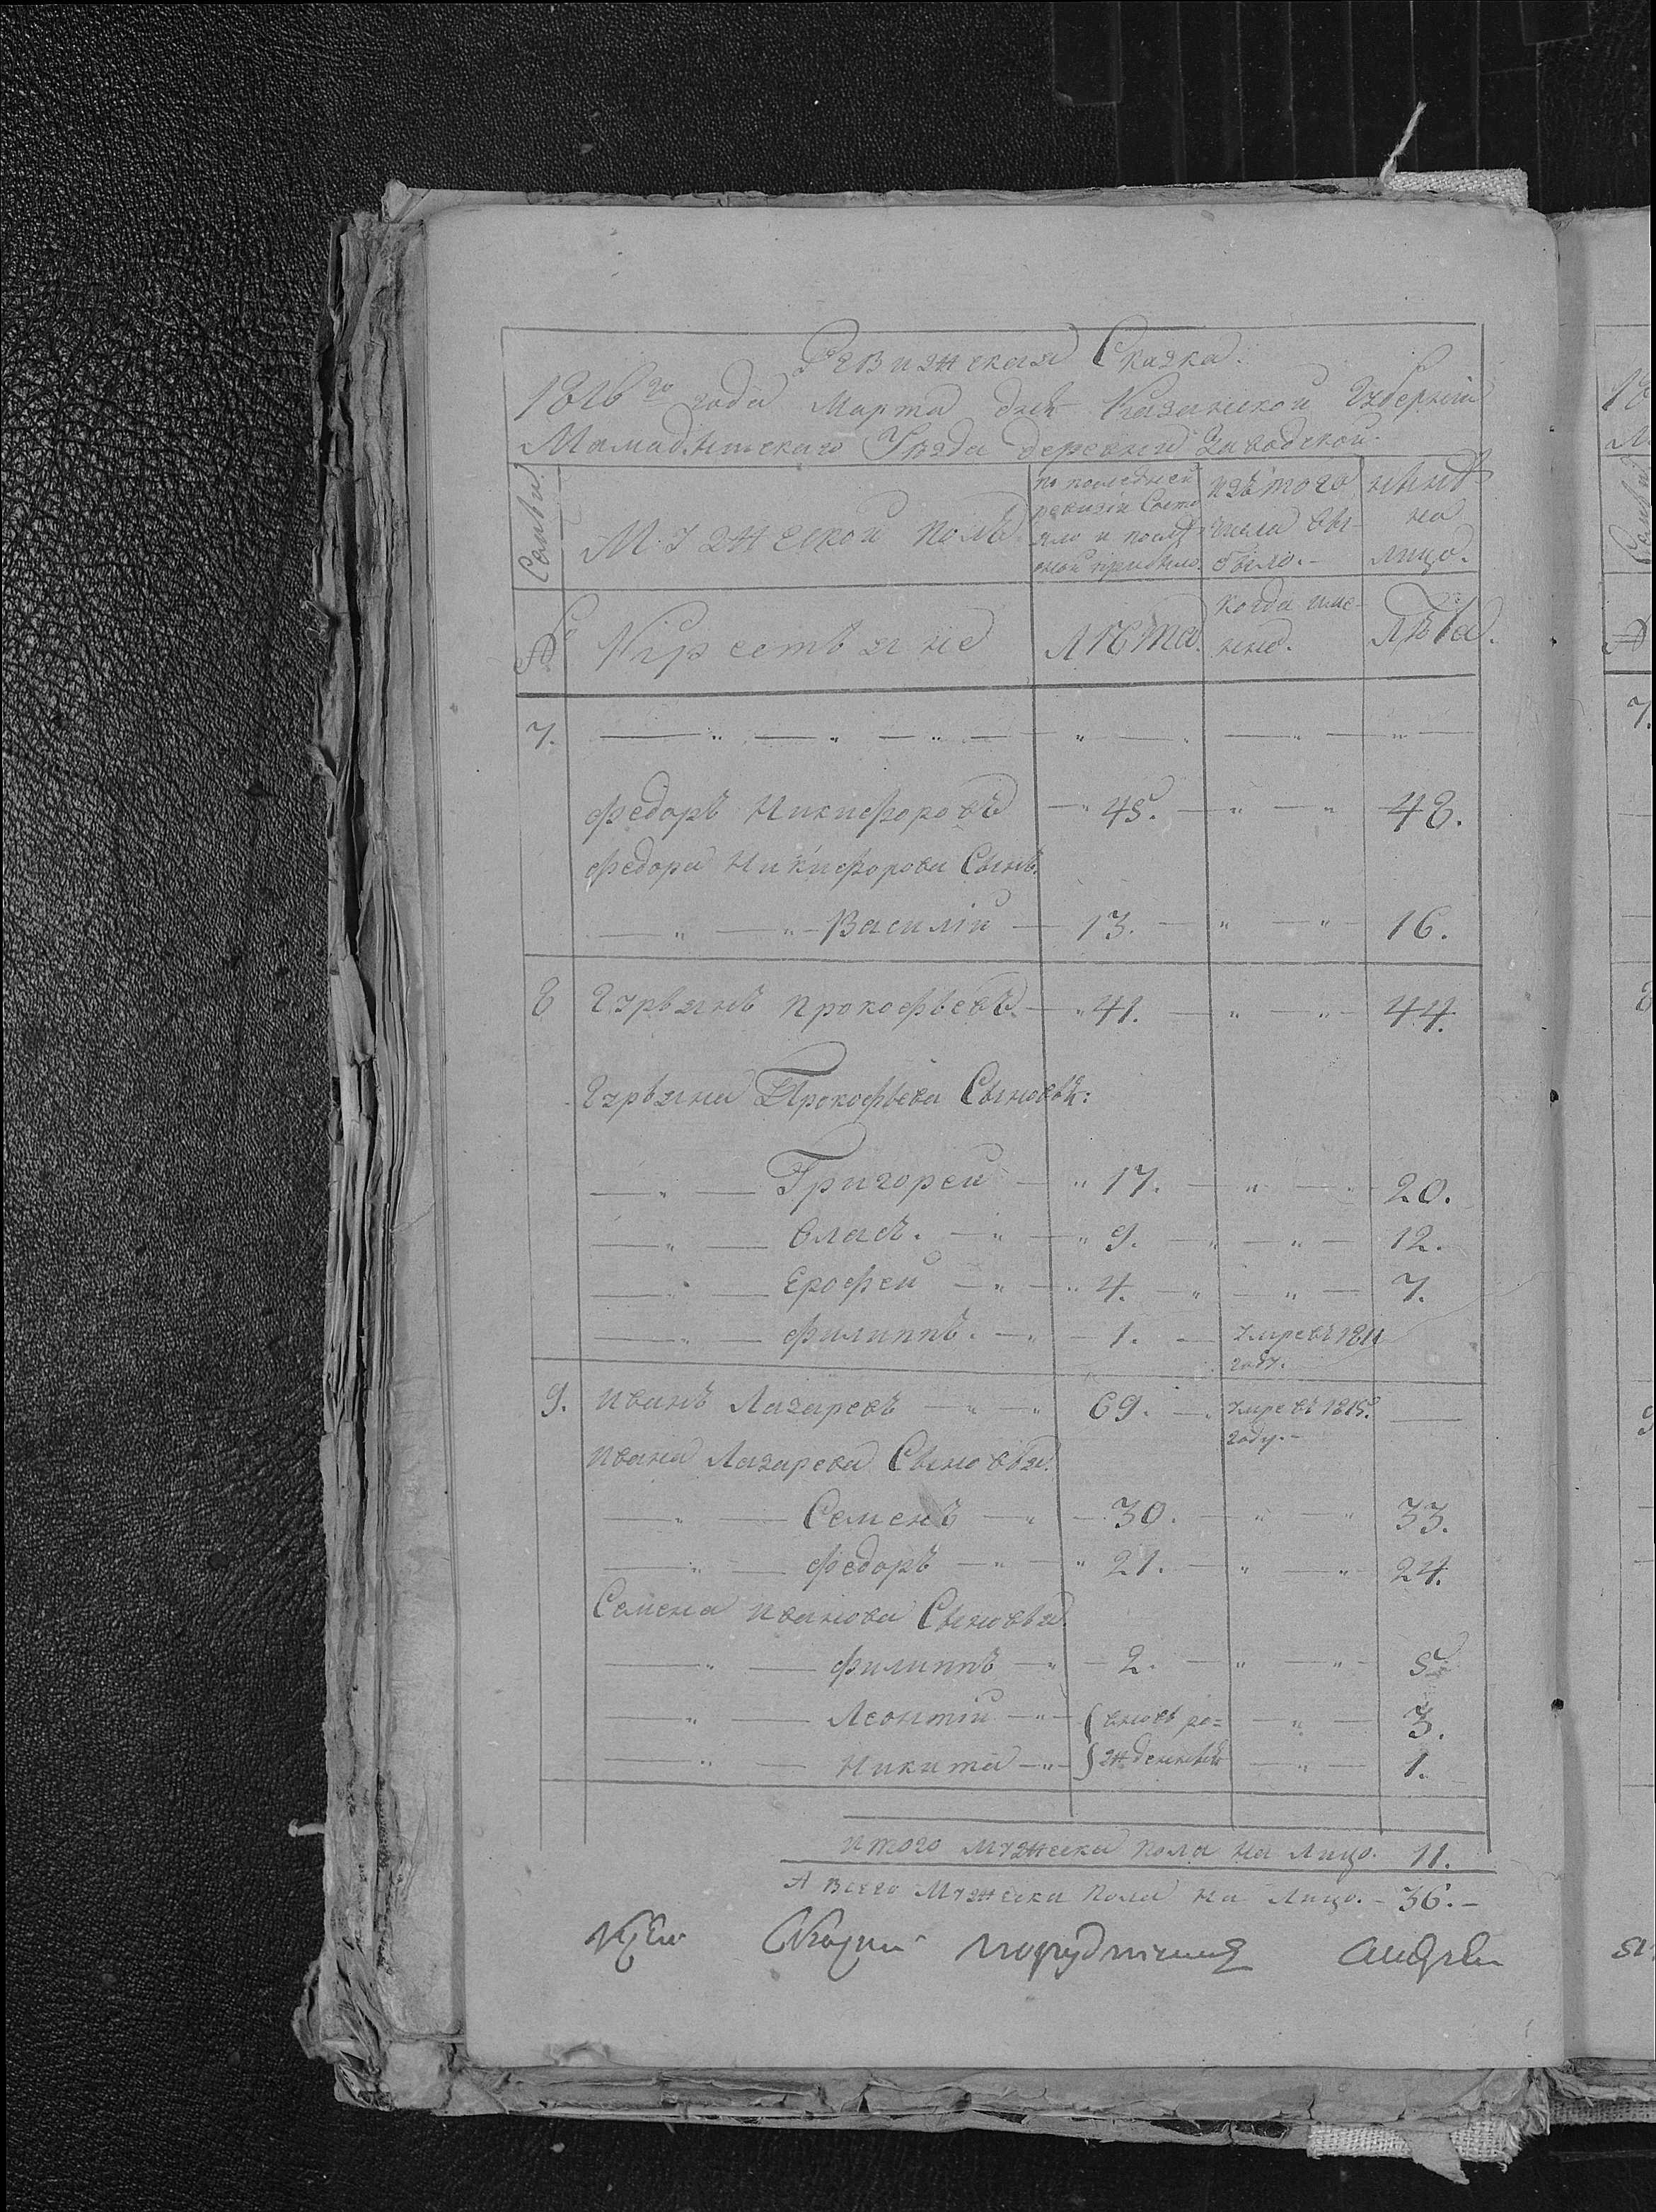 Ревижская Сказка.
1816го года Марта дня Казанской Губерніи
Мамадышскаго Уезда деревни Заводской.
Семьи. Мужеской полъ. по последней ревизіи состояло и после оной прибыло. изъ того числа выбыло. ныне на лицо.
№ Крестьяне Лета. когда именно. Лѣта.
7. — „ — „ — „ — „ — „ — „ —
Федоръ Никифоровъ — „ 45. — „ — „ 48.
Федора Никифорова Сынъ.
— „ — „ — Василій — 13. — „ — „ 16.
8 Гурьянъ Прокофьевъ. — „ 41. — „ — „ — 44.
Гурьяна Прокофьева Сыновья:
— „ — Григорей — „ 17. — „ — „ 20.
— „ — Власъ. — „ — „ 9. — „ — „ — 12.
— „ — Ерофей — „ — „ 4. — „ — „ — 7.
— „ — Филиппъ. — „ — 1. — умре въ 1811 году.
9. Иванъ Лазаревъ — „ — „ 69. — „ умре въ 1815. году. — —
Ивана Лазарева Сыновья.
— „ — Семенъ — „ — 30. — „ — „ 33.
— „ — Федоръ — „ — „ 21. — „ — „ 24.
Семена Иванова Сыновья.
— „ — Филиппъ — „ — 2. — „ — „ 5
— „ — Леонтій — „ — { вновь ро= — „ — 3.
— „ — Никита — „ — { жденный — „ — 1.
итого Мужеска пола на Лицо. 11.
А Всего Мужеска пола на Лицо. — 36. —
Сказки Андрей